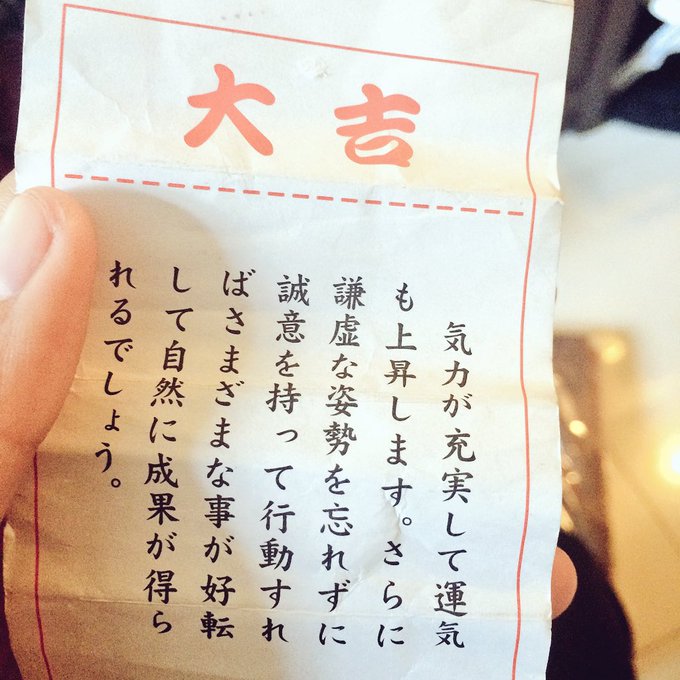 大吉
気力が充実して運気
も上昇します。さらに
謙虚な姿勢を忘れずに
誠意を持って行動すれ
ばさまざまな事が好転
して自然に成果が得ら
れるでしょう。